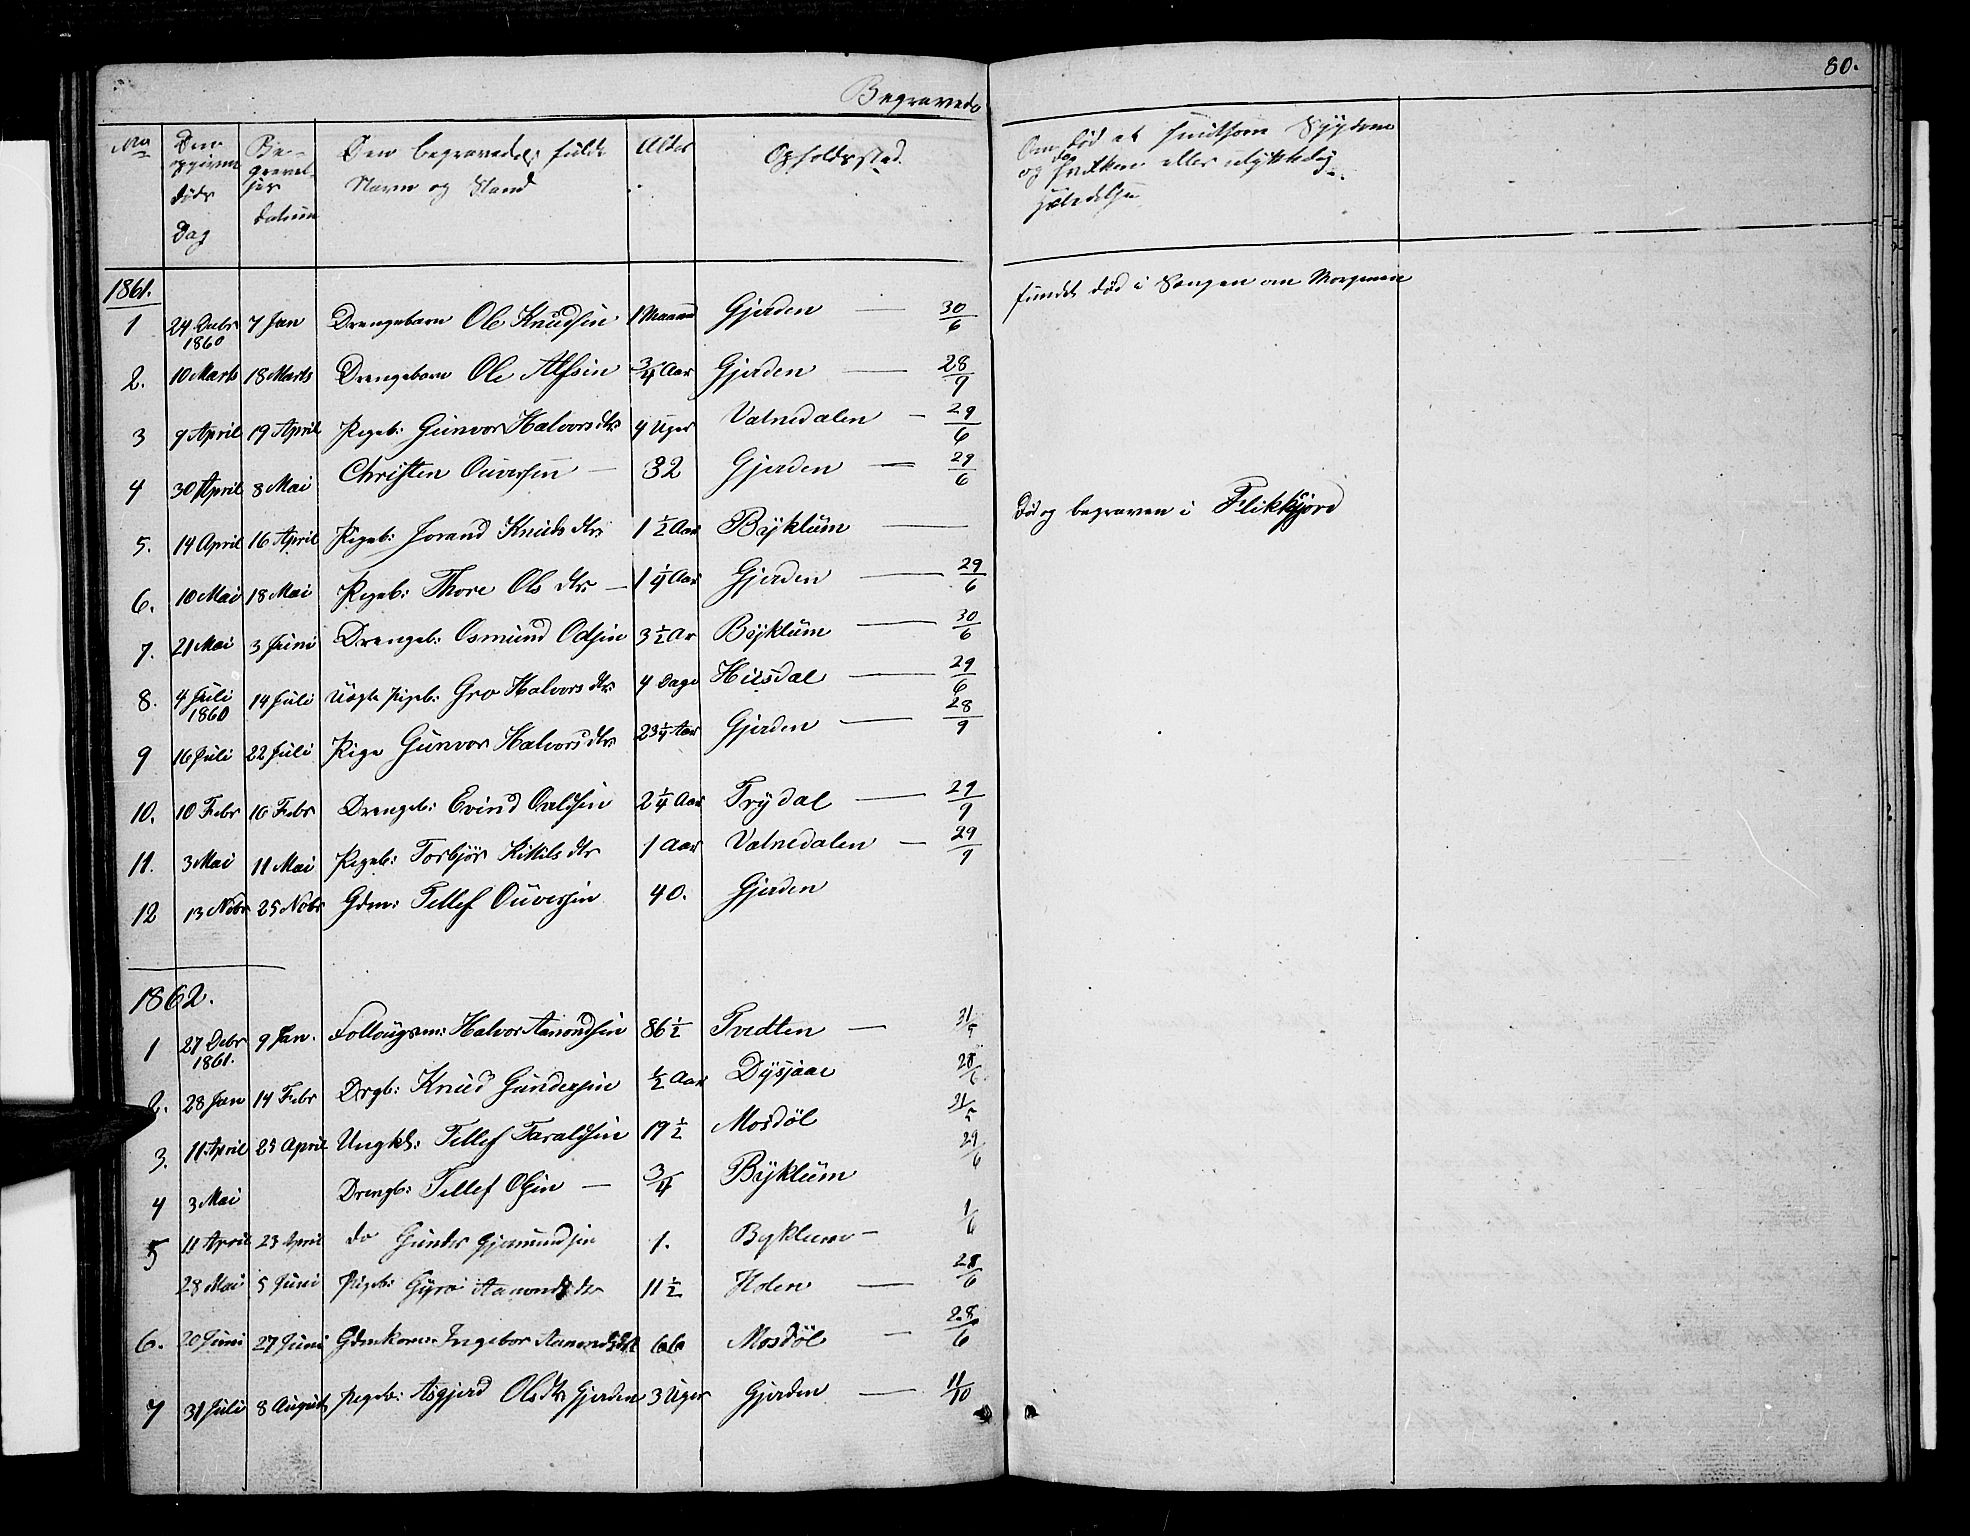 80.
Begravede
No
Den opgivne Døds Dag
Begravelses datum
Den begravedes fulde Navn og Stand
Alder
Opholdssted.
Om død af smitsom Sygdom og da hvilken eller ulykkelig Hændelse
1861.
1 24 Decbr 1860 7 Jan Drengebarn Ole Knudsen 1 Maaned Gjerden — 30/6 fundet død i Sengen om Morgenen
2. 10 Marts 18 Marts Drengebarn Ole Alfsen 3/4 Aar Gjerden — 28/9
3 9 April 19 April Pigeb: Gunvor Halvorsdtr 4 Uger Vatnedalen — 29/6
4 30 April 8 Mai Christen Ouversen — 32 Gjerden — 29/6
5. 14 April 16 April Pigeb: Jorand Knudsdtr 1 1/2 Aar Byklum — Død og begraven i Flikkfjord
6. 10 Mai 18 Mai Pigeb: Thore Olsdtr — 1 1/4 Aar Gjerden — 29/6
7. 21 Mai 3 Juni Drengeb: Osmund Odsen 3 1/2 Ar Byklum — 30/6
8. 4 Juli 1860 14 Juli Uægte Pigeb: Gro Halvorsdtr 4 Dage Hilsdal — 29/6
9 16 Juli 22 Juli Pige Gunvor Halvorsdtr 23 1/4 Aar Gjerden — 28/9
10. 10 Febr 16 Febr Drengeb: Evind 2 1/4 Aar Trydal — 29/9
11. 3 Mai 11 Mai Pigeb: Torbjør Kittilsdtr 1 Aar Vatnedalen — 29/9
12 13 Nobr 25 Nobr Gdm: Tellef Ouversen 40. Gjerden
1862.
1 27 Decbr 1861. 9 Jan. Follougsm: Halvor Aamondsen 86 1/2 Tvedten — 31/5
2. 28 Jan 14 Febr Drgb: Knud Gundersen 1/2 Aar Dysjaae 28/6
3. 11 April 23 April Ungkl: Tellef Taraldsen 19 1/2 Mosdøl 31/5
4 3 Mai Drengb: Tellef Olsen — 3/4 Byklum 29/6
5 11 April 23 April do Gunder Gjermundsen 1. Byklum — 1/6
28 Mai 5 Juni Pigeb: Gyro Aamondsdtr 11 1/2 Holen — 28/6
6. 20 Juni 27 Juni Gdmkone Ingebor Aamondsdtr 66 Mosdøl — 28/6
7 31 Juli 8 August Pigeb: Asgjerd Olsdtr Gjerden 3 Uger Gjerden — 11/10